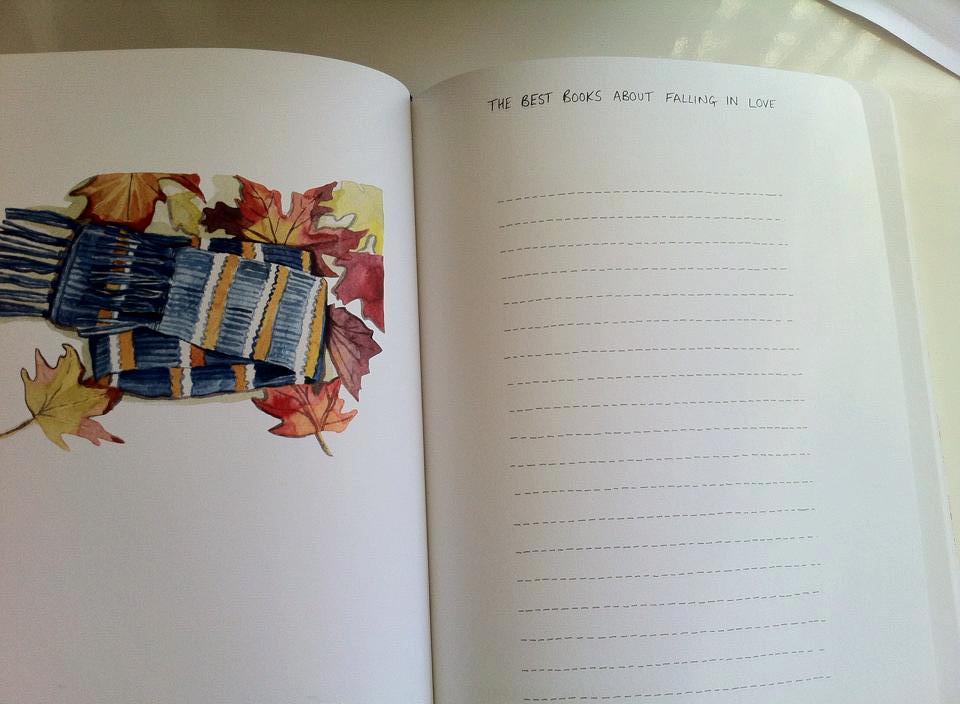 THE BEST BOOKS ABOUT FALLING IN LOVE